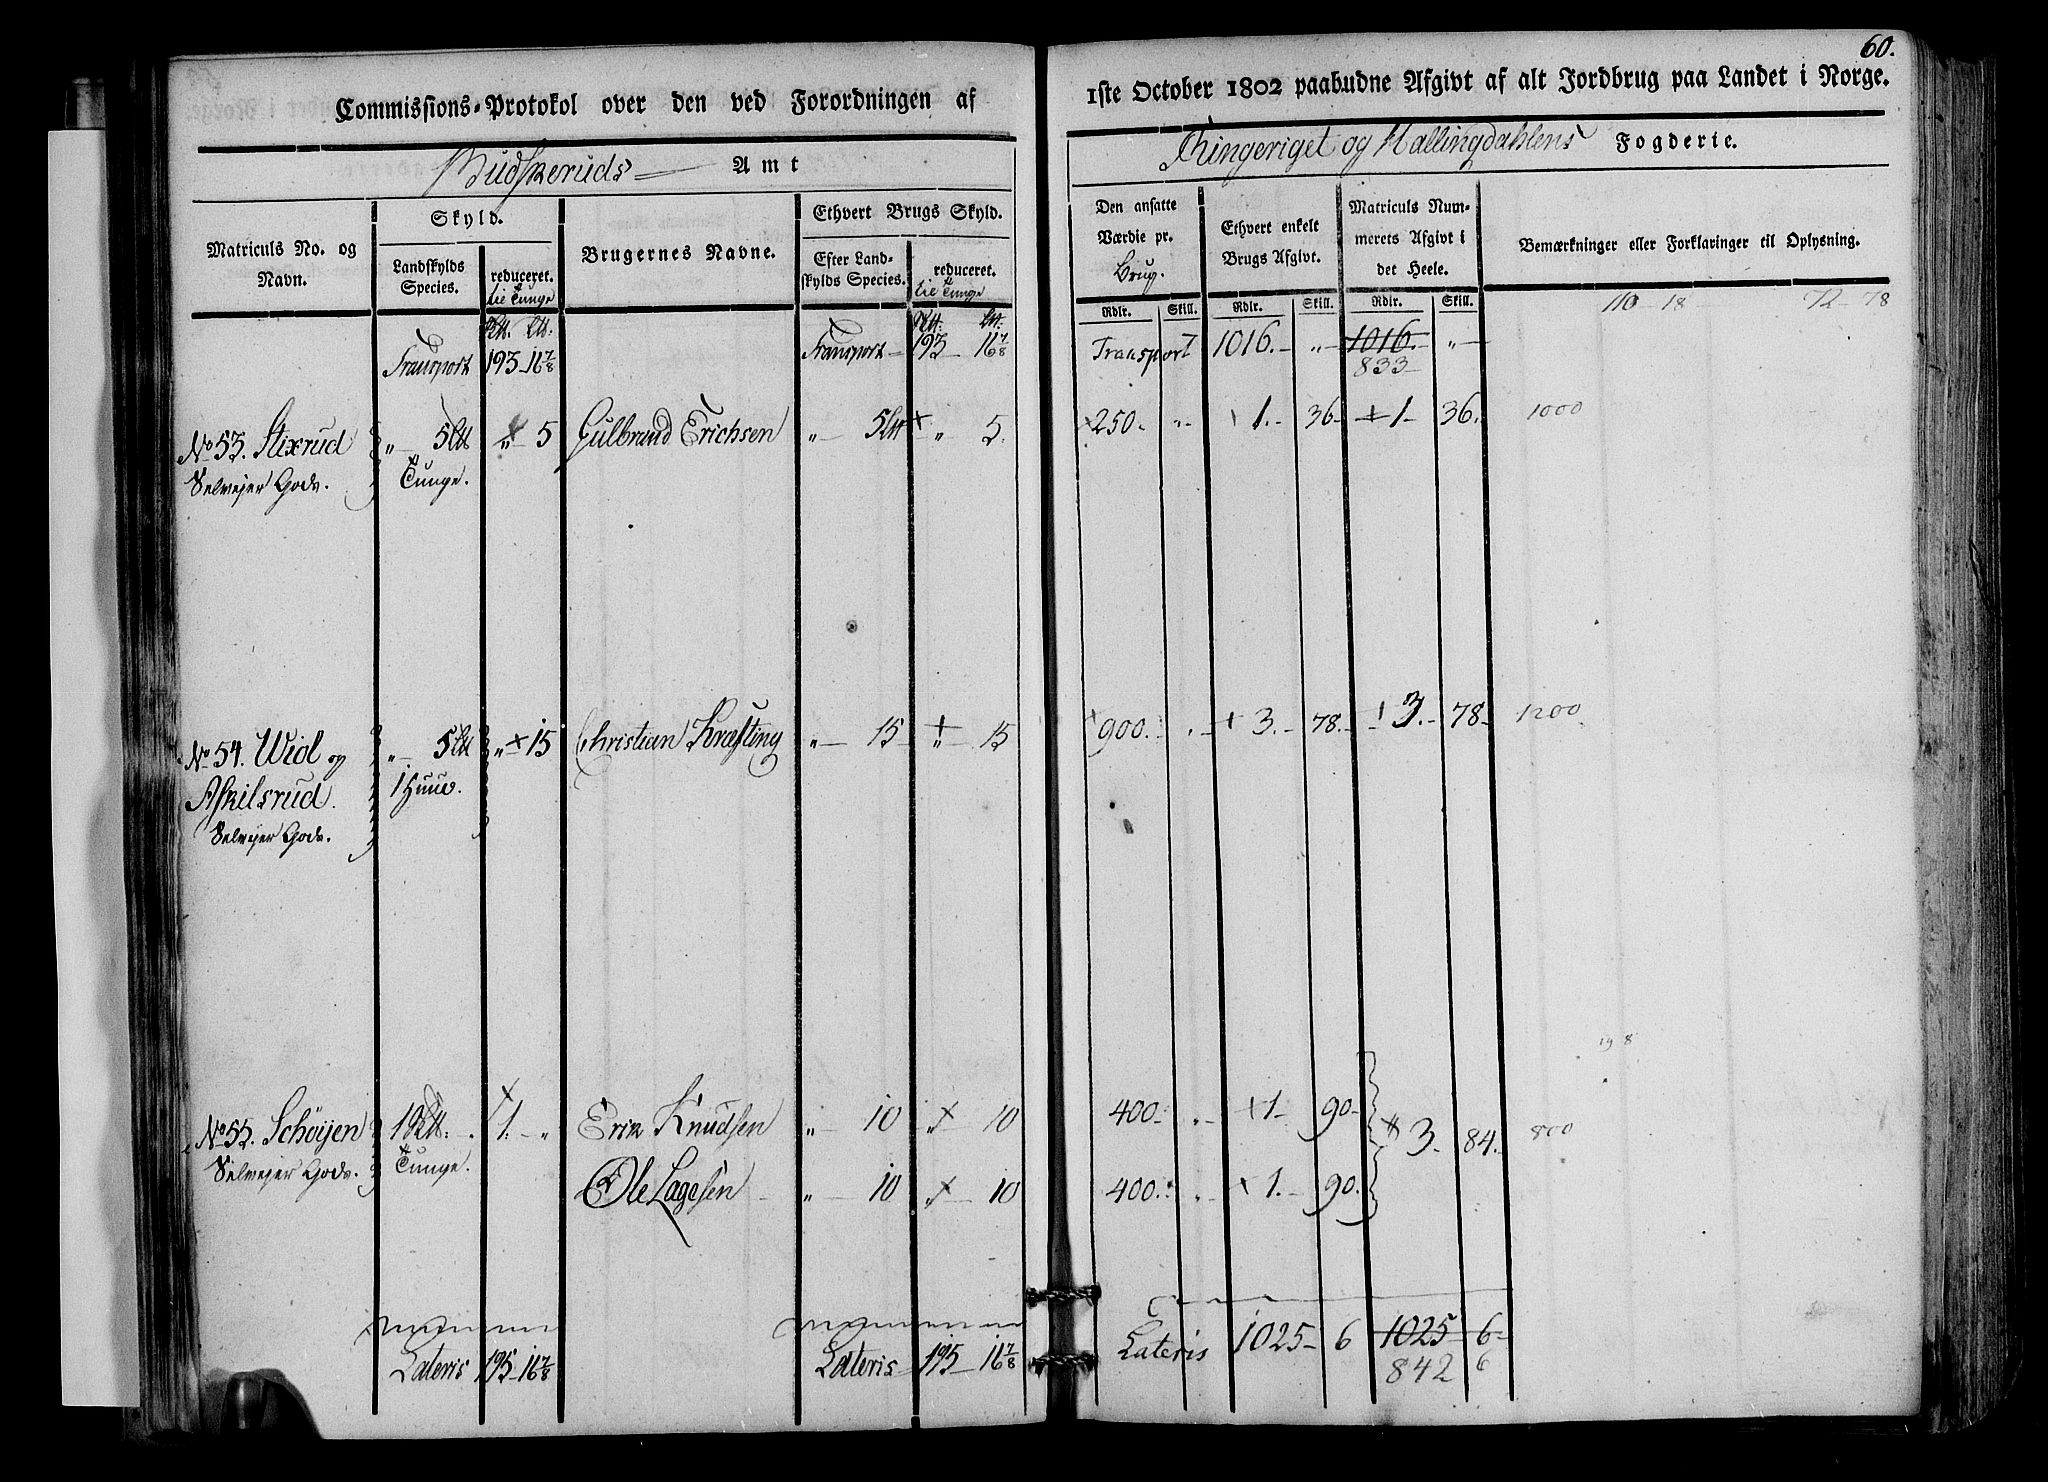 60.
Commissions-Protokol over den ved Forordningen af
1ste October 1802 paabudne Afgivt af alt Jordbrug paa Landet i Norge.
Budskeruds Amt
Ringeriget og Hallingdahlens Fogderie.
Matriculs No. og Navn.
Skyld.
Landskylds Species.
reduceret.
til Tunge
Brugernes Navne.
Ethvert Brugs Skyld.
Efter Landskylds Species.
reduceret.
til Tunge
Den ansatte Værdie pr. Brug.
Rdlr. Skill.
Ethvert enkelt Brugs Afgivt.
Rdlr. Skill.
Matriculs Nummerets Afgivt i det Heele.
Rdlr. Skill.
Bemærkninger eller Forklaringer til Oplysning.
110 - 18 - 72 - 78
Transport 193 - 16 7/8 Transport - 193 - 16 7/8 Transport 1016. - „ - 1016. „ -
833 -
No 53. Stixrud „ - 5 „ 5 Gulbrand Erichsen „ - 5 „ 5. 250. „ 1. 36. 1 - 36. 1000
Selvejer Gods. Tunge.
No 54. Wiol og „ - 5 „ 15 Christian Kræfting „ - 15 „ 15 900. „ 3. - 78. 3. - 78 - 1200
Askilsrud. 1 Huud.
Selvejer Gods.
198
No 55. Schöyen 1 1. - „ Erik Knudsen „ 10 „ 10 400. „ 1 - 90. 3. 84. 800
Selvejer Gods. Tunge.
Ole Lagesen „ - 10 „ 10 400. „ 1. - 90.
Lateris 195 - 16 7/8 Lateris 195 - 16 7/8 Lateris 1025 - 6 1025 6 -
842 6